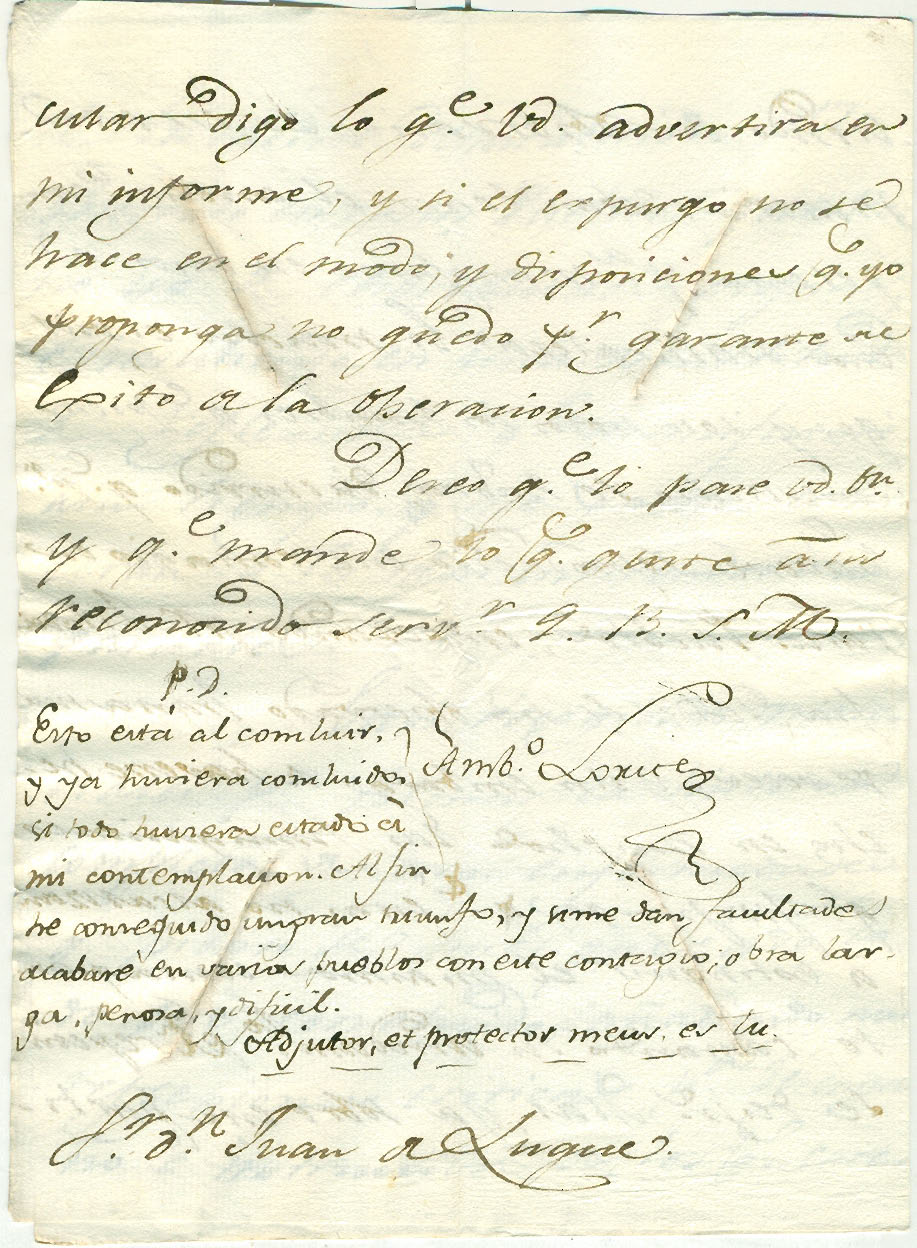 cular digo lo q.e Vd. advertira en
mi informe, y si el expurgo no se
hace en el modo, y disposiciones q. yo
proponga no quedo p.r garante de
exito de la operacion.
Deseo q.e lo pase Vd. bn.
y q.e mande lo q. guste à su
reconocido serv.r Q. B. S. M.
P. D.
Esto està al concluir,
y ya huviera concluido,
si todo huviera estado à
mi contemplacion. Al fin
he conseguido un gran triunfo, y si me dan facultades
acabarè en varios pueblos con este contagio; obra lar-
ga, penosa, y dificil.
Amb.o Lorite
Adjutor, et protector meus, es tu.
S.r d.n Juan de Luque.